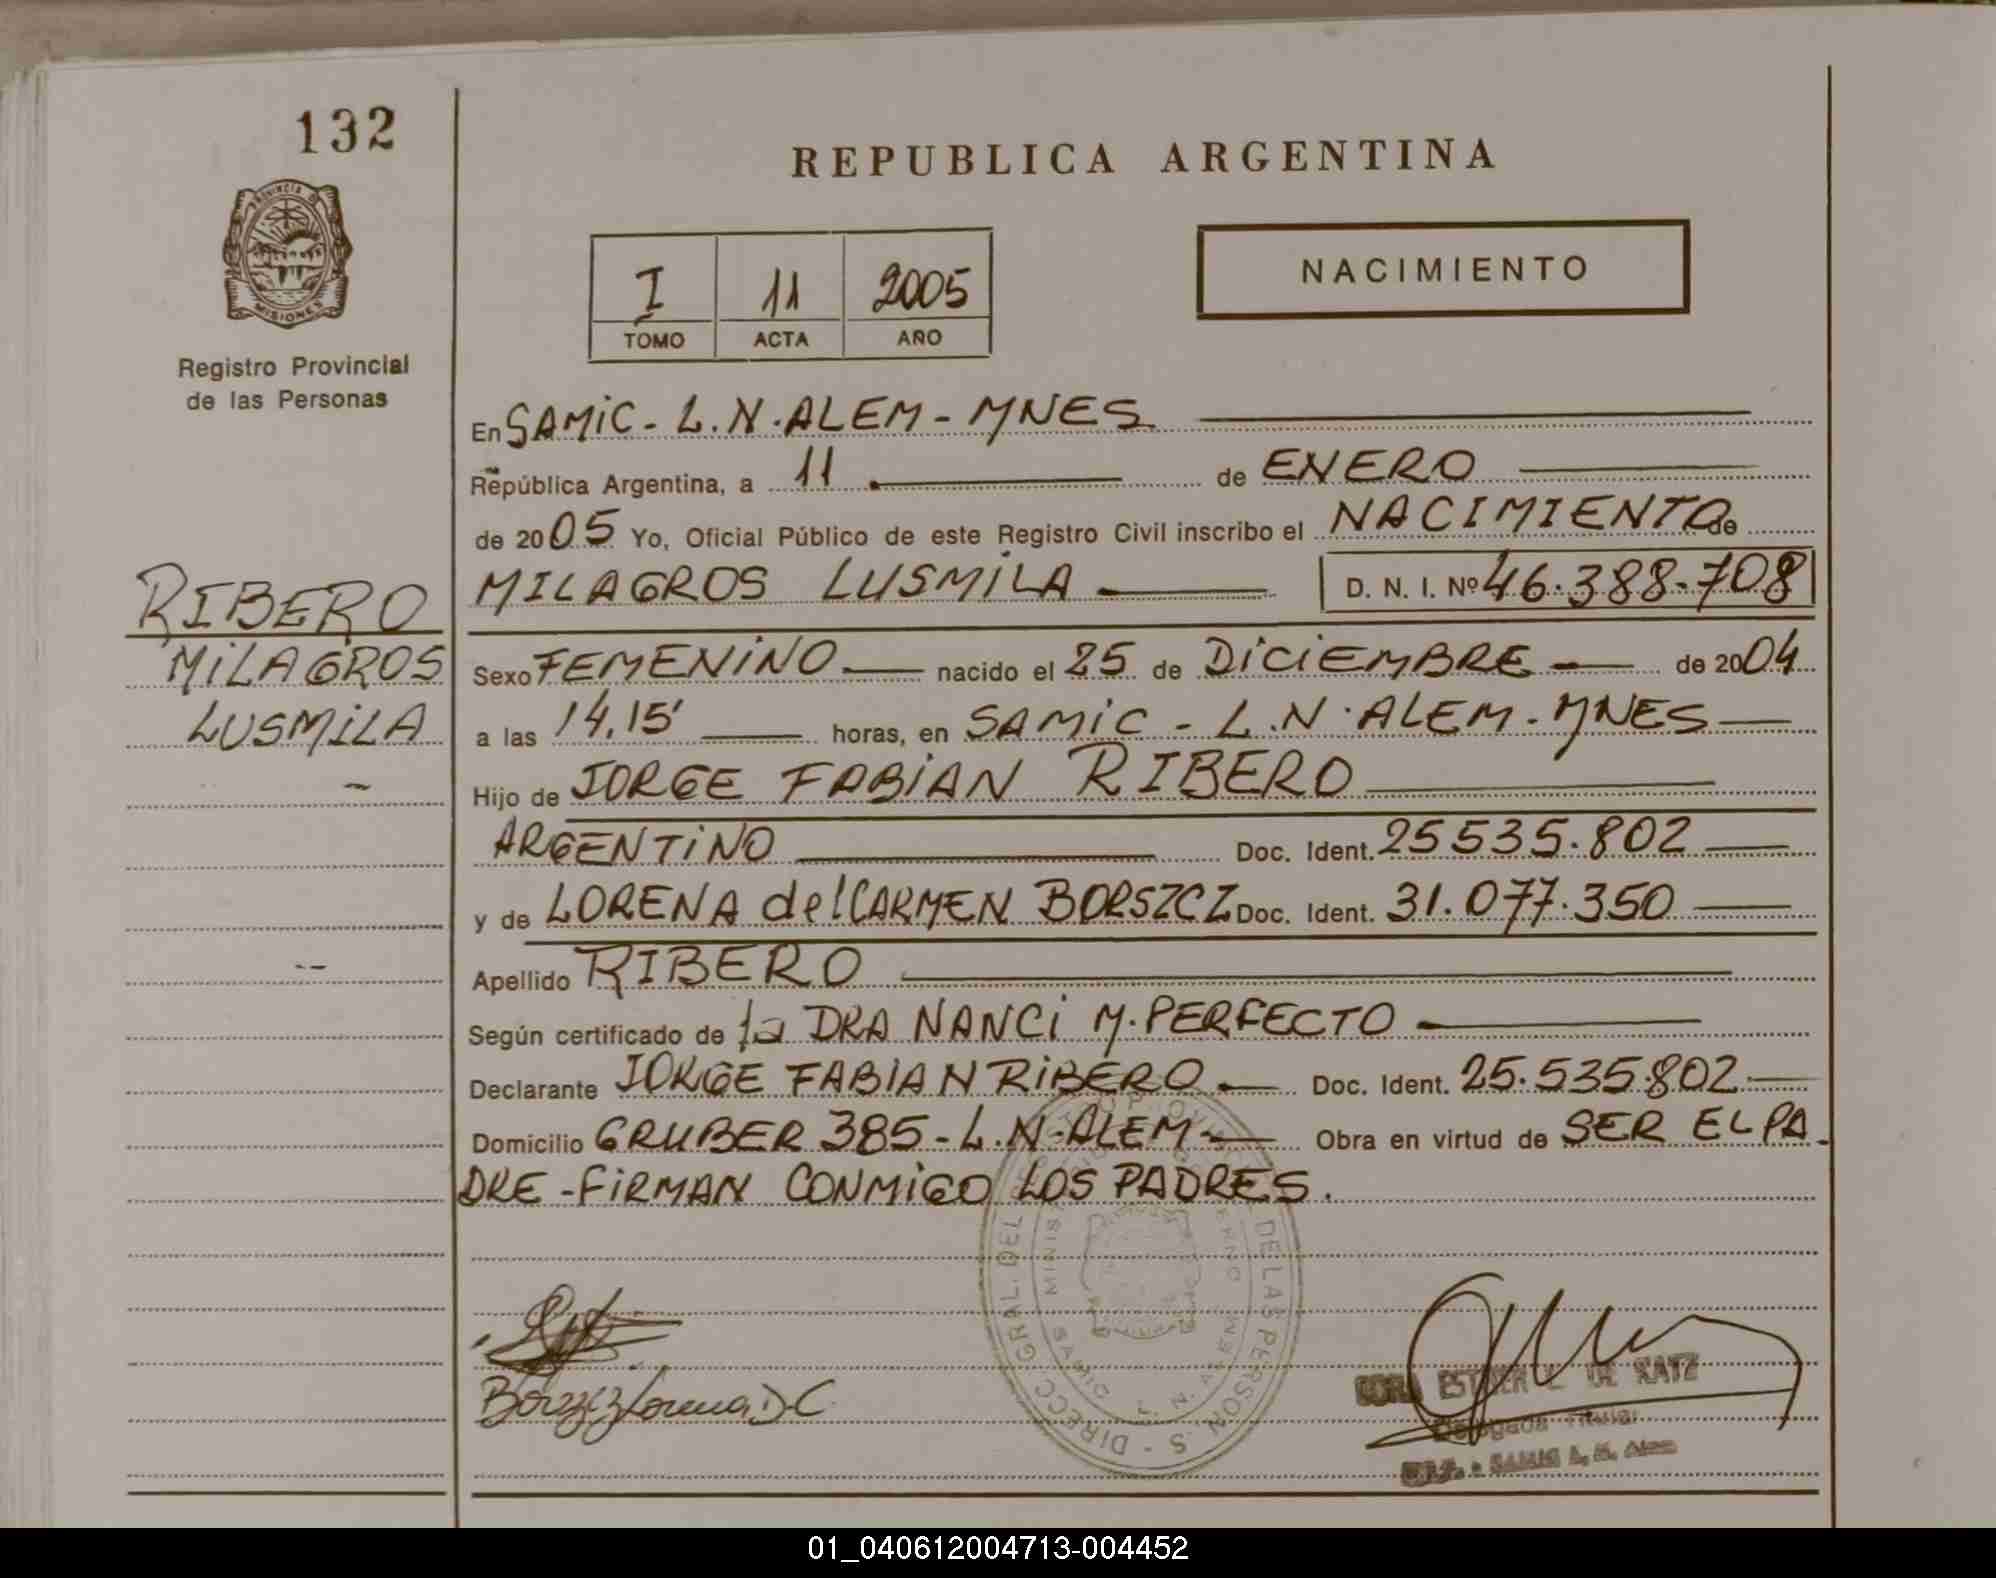 132
REPUBLICA ARGENTINA
PROVINCIA DE
MISIONES
Registro Provincial
de las Personas
I 11 2005
TOMO ACTA AÑO
NACIMIENTO
En SAMIC - L.N. ALEM - MNES
República Argentina, a 11 de ENERO
de 2005 Yo, Oficial Público de este Registro Civil inscribo el NACIMIENTO de
MILAGROS LUSMILA D. N. I. Nº 46.388.708
RIBERO
MILAGROS
LUSMILA
Sexo FEMENINO nacido el 25 de DICIEMBRE de 2004
a las 14,15' horas, en SAMIC - L.N. ALEM - MNES
Hijo de JORGE FABIAN RIBERO
ARGENTINO Doc. Ident. 25535.802
y de LORENA del CARMEN BORSZCZ Doc. Ident. 31.077.350
Apellido RIBERO
Según certificado de la DRA NANCI M. PERFECTO
Declarante JORGE FABIAN RIBERO Doc. Ident. 25.535.802
Domicilio GRUBER 385 - L.N. ALEM - Obra en virtud de SER EL PA-
DRE - FIRMAN CONMIGO LOS PADRES.
DIRECC GRAL. DEL DE LAS PERSON.S
L. N. ALEM
ESTHER DE KATZ
Delegada Titular
L. N. Alem
01_040612004713-004452